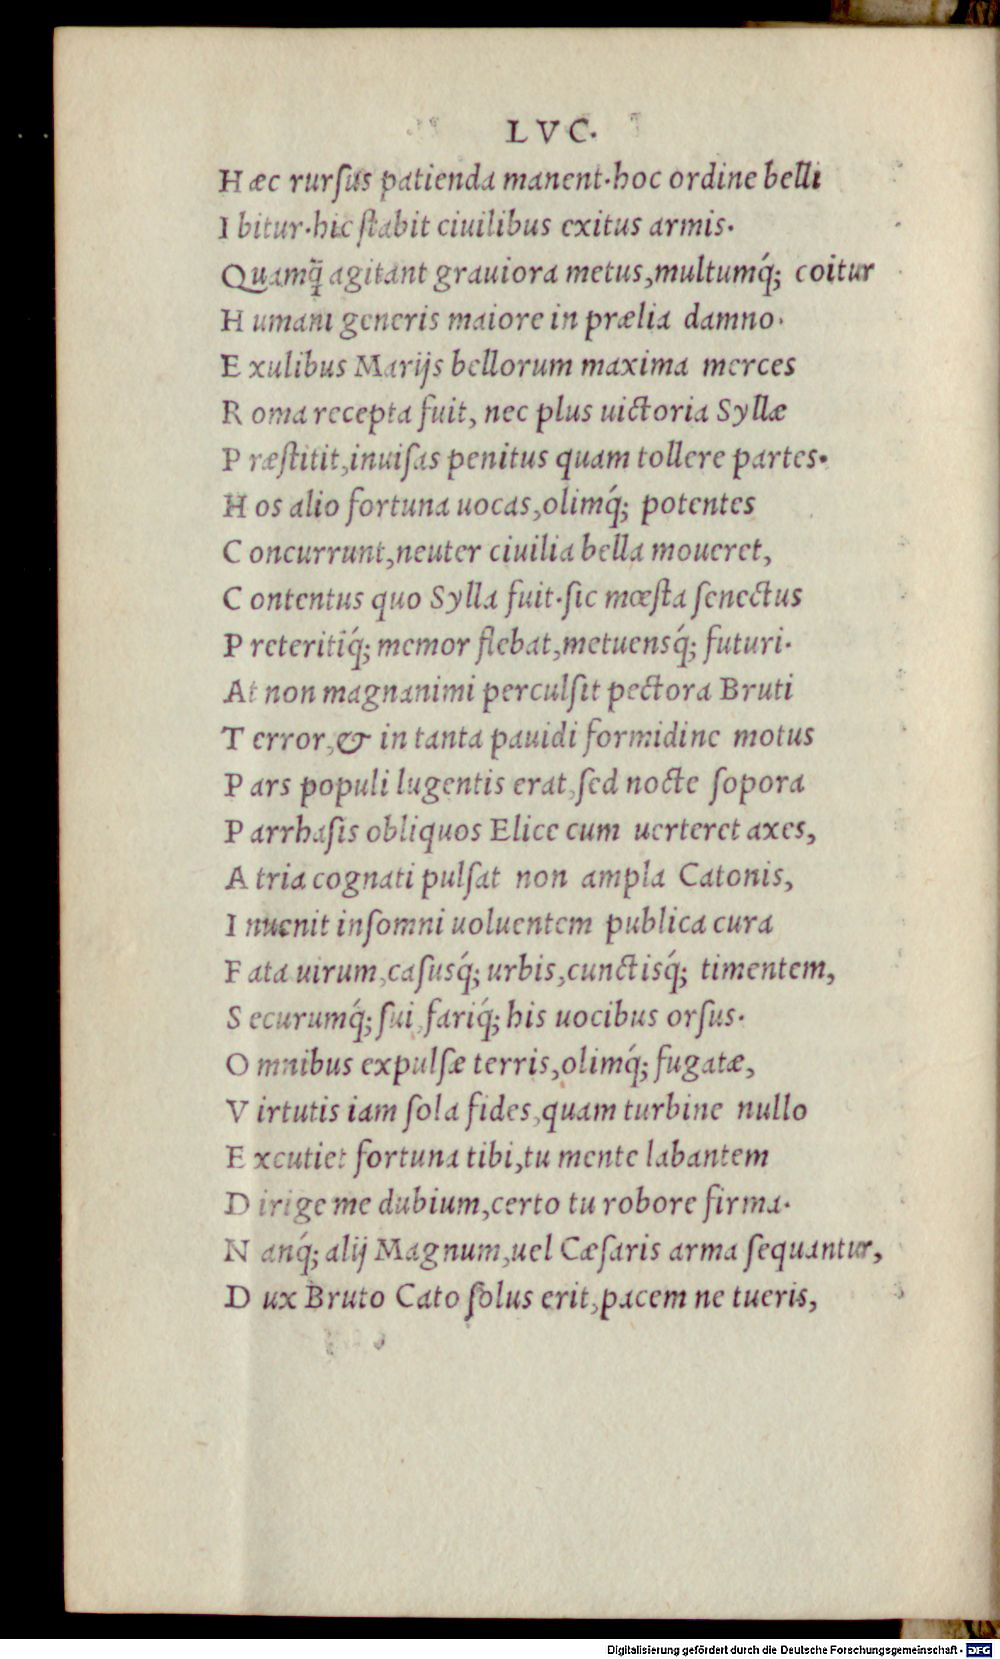 LVC.
H æc rurſus patienda manent.hoc ordine belli
I bitur.hic ſtabit ciuilibus exitus armis.
Quamꝗ̃ agitant grauiora metus,multumq́; coitur
H umani generis maiore in prælia damno.
E xulibus Marijs bellorum maxima merces
R oma recepta fuit, nec plus uictoria Syllæ
P ræſtitit,inuiſas penitus quam tollere partes.
H os alio fortuna uocas,olimq́; potentes
C oncurrunt,neuter ciuilia bella moueret,
C ontentus quo Sylla fuit.ſic mœſta ſenectus
P reteritiq́; memor flebat,metuensq́; futuri.
At non magnanimi perculſit pectora Bruti
T error,& in tanta pauidi formidine motus
P ars populi lugentis erat,ſed nocte ſopora
P arrhaſis obliquos Elice cum uerteret axes,
A tria cognati pulſat non ampla Catonis,
I nuenit inſomni uoluentem publica cura
F ata uirum,caſusq́; urbis,cunctisq́; timentem,
S ecurumq́; ſui,fariq́; his uocibus orſus.
O mnibus expulſæ terris,olimq́; fugatæ,
V irtutis iam ſola fides,quam turbine nullo
E xcutiet fortuna tibi,tu mente labantem
D irige me dubium,certo tu robore firma.
N anq́; alij Magnum,uel Cæſaris arma ſequantur,
D ux Bruto Cato ſolus erit,pacem ne tueris,
Digitalisierung gefördert durch die Deutsche Forschungsgemeinschaft - DFG